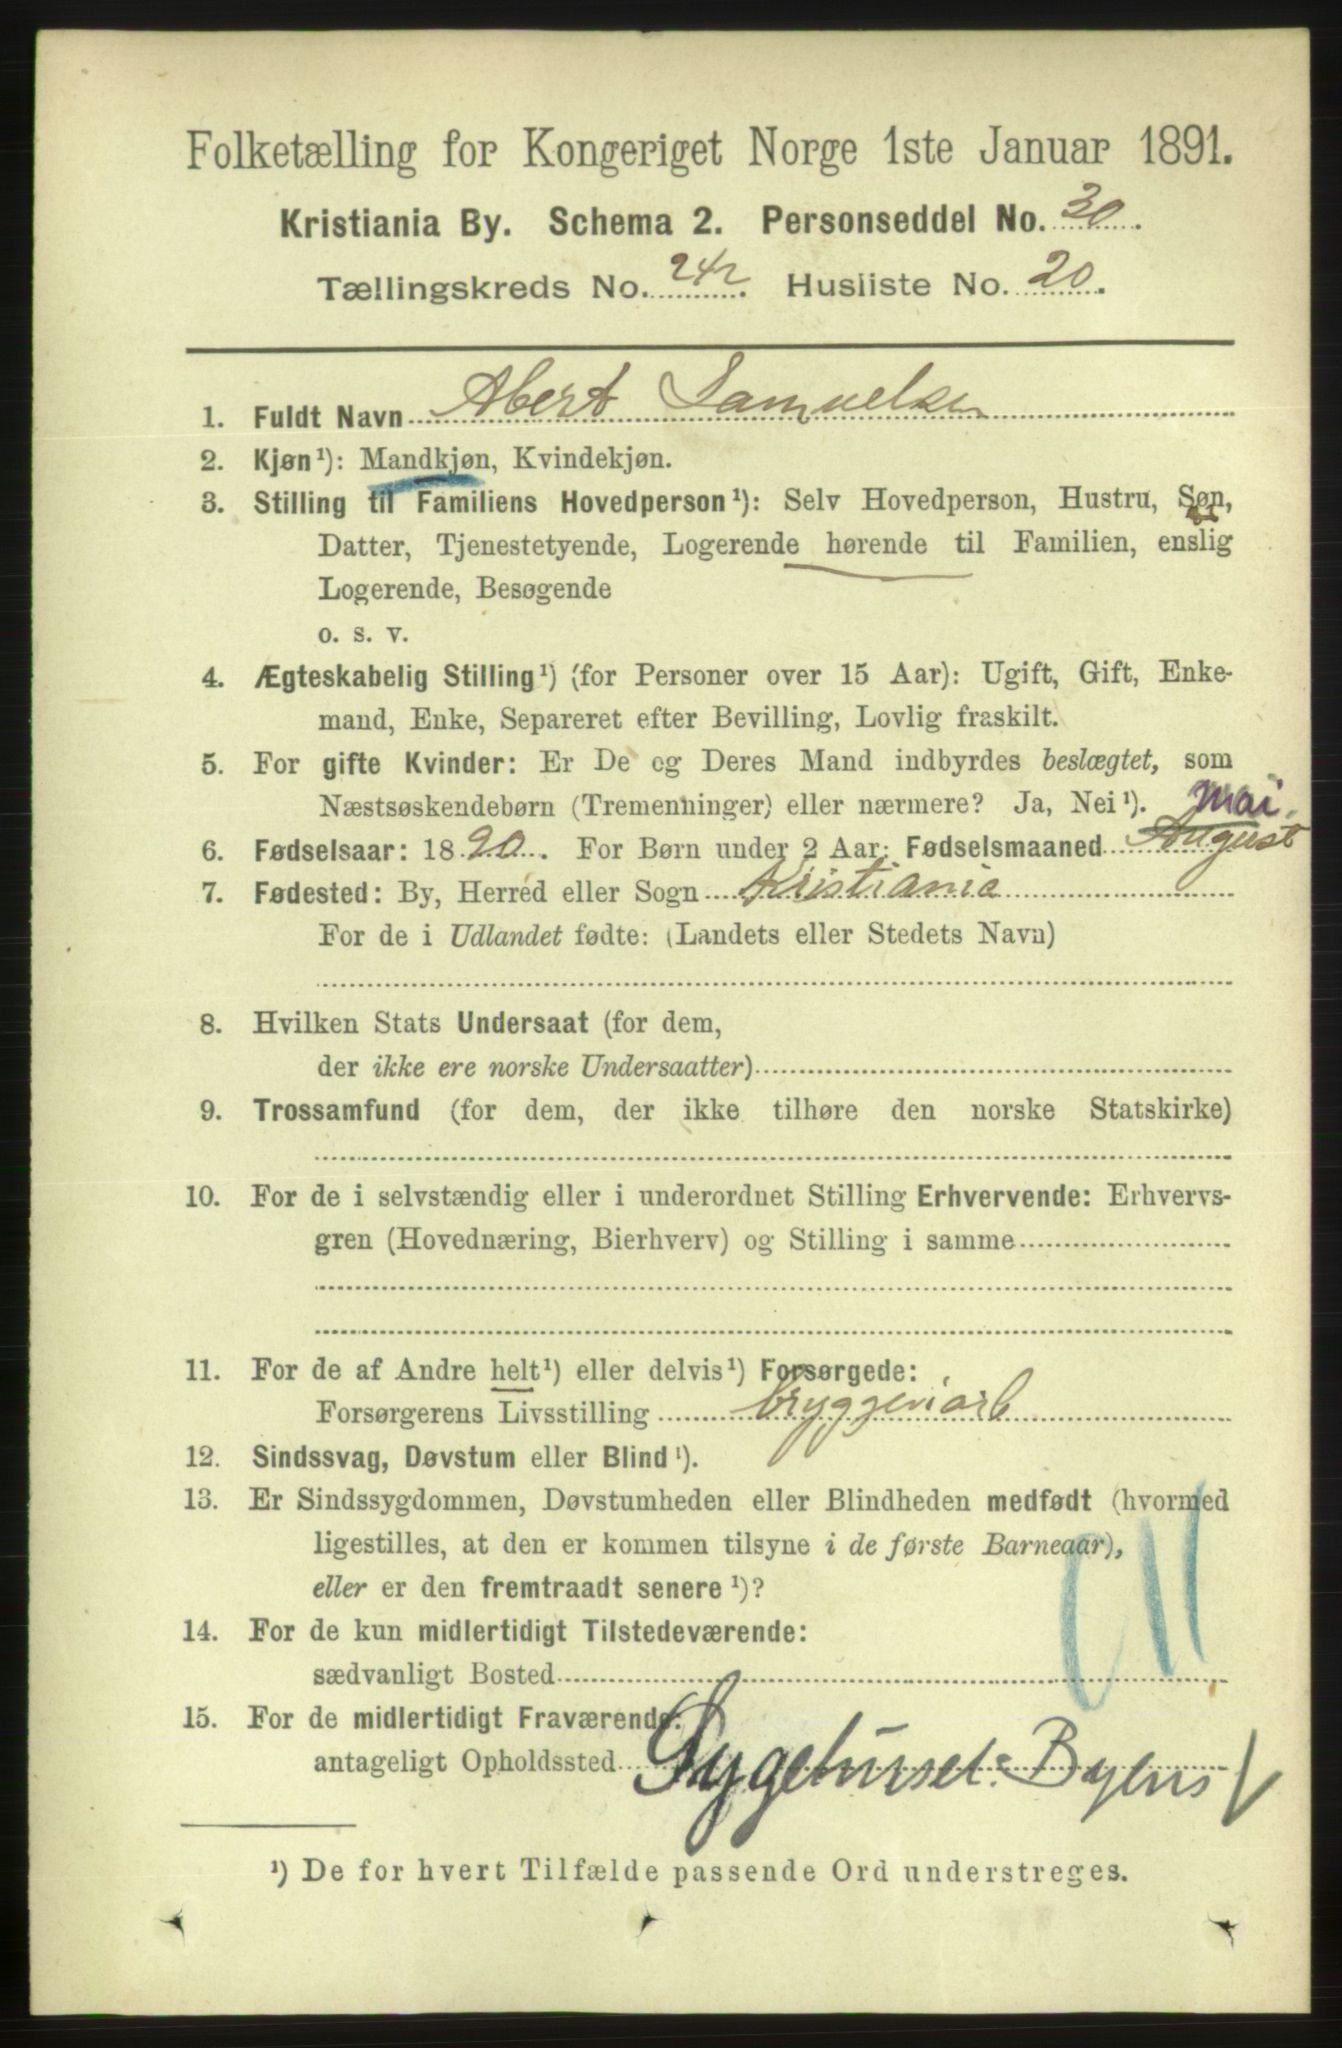 Folketælling for Kongeriget Norge 1ste Januar 1891.
Kristiania By. Schema 2. Personseddel No. 30.
Tællingskreds No. 242. Husliste No. 20.
1. Fuldt Navn Abert Samuelsen
2. Kjøn¹): Mandkjøn, Kvindekjøn.
3. Stilling til Familiens Hovedperson¹): Selv Hovedperson, Hustru, Søn,
Datter, Tjenestetyende, Logerende hørende til Familien, enslig
Logerende, Besøgende
o. s. v.
4. Ægteskabelig Stilling¹) (for Personer over 15 Aar): Ugift, Gift, Enke-
mand, Enke, Separeret efter Bevilling, Lovlig fraskilt.
5. For gifte Kvinder: Er De og Deres Mand indbyrdes beslægtet, som
Næstsøskendebørn (Tremenninger) eller nærmere? Ja, Nei¹). Mai.
6. Fødselsaar: 1890. For Børn under 2 Aar: Fødselsmaaned August
7. Fødested: By, Herred eller Sogn Kristiania
For de i Udlandet fødte: (Landets eller Stedets Navn)
8. Hvilken Stats Undersaat (for dem,
der ikke ere norske Undersaatter)
9. Trossamfund (for dem, der ikke tilhøre den norske Statskirke)
10. For de i selvstændig eller i underordnet Stilling Erhvervende: Erhvervs-
gren (Hovednæring, Bierhverv) og Stilling i samme
11. For de af Andre helt¹) eller delvis¹) Forsørgede:
Forsørgerens Livsstilling bryggeriarb
12. Sindssvag, Døvstum eller Blind¹).
13. Er Sindssygdommen, Døvstumheden eller Blindheden medfødt (hvormed
ligestilles, at den er kommen tilsyne i de første Barneaar),
eller er den fremtraadt senere¹)?
14. For de kun midlertidigt Tilstedeværende:
sædvanligt Bosted
15. For de midlertidigt Fraværende:
antageligt Opholdssted Sygehuset: Byens
¹) De for hvert Tilfælde passende Ord understreges.